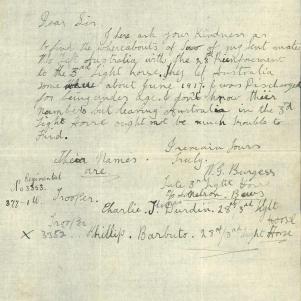 Dear Sir
I here ask your kindness as
to find the whereabouts of two of my tent mates
who left Australia with the 28th Reinforcement
to the 3rd Light horse, They left Australia
some about June 1917. I was Discharged
for being under Age. I don't know their
Numbers but leaving Australia in the 3rd
Light Horse ought not be much trouble to
Find.
I remain Yours
Truly.
Their Names
are
W.G. Burgess
Late 3rd Light Horse
Regimental
No 3363.
Trooper.
Charlie. J. Durdin. 28th 3rd Light Horse
Trooper
X 3352 Phillip. Barbuto. 28rd/3rd Light Horse